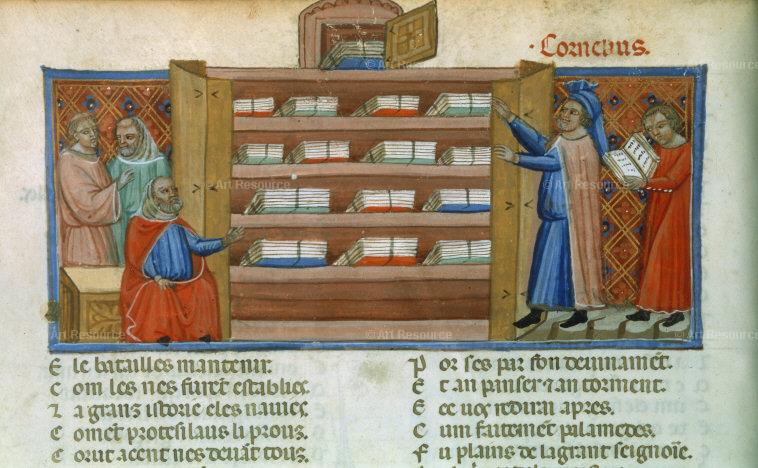 Cornelius.
E le batailles mantenir.
C om les nes furẽt establies
C omẽt protesilaus li prous.
C orut acent nes deuãt tous.
P or ses par son deuinamẽt.
E t an panser ⁊ an torment.
E ce uos redirai apres.
C um faitemẽt palamedes.
F u plains de la grant seignoie.
© Art Resource